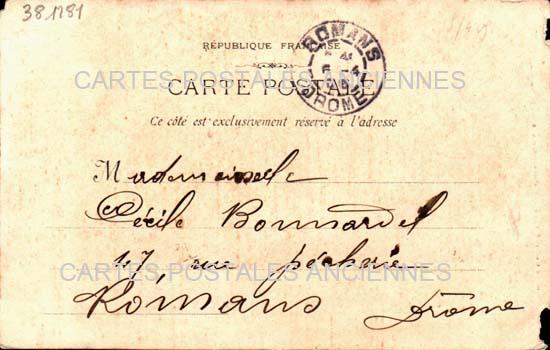 38.1281
RÉPUBLIQUE FRANÇAISE
ROMANS
DROME
CARTES POSTALES ANCIENNES
CARTE POSTALE
Ce côté est exclusivement réservé à l'adresse
Mademoiselle
Cécile Bonnardel
47, rue pêcherie
CARTES POSTALES ANCIENNES
Romans Drôme